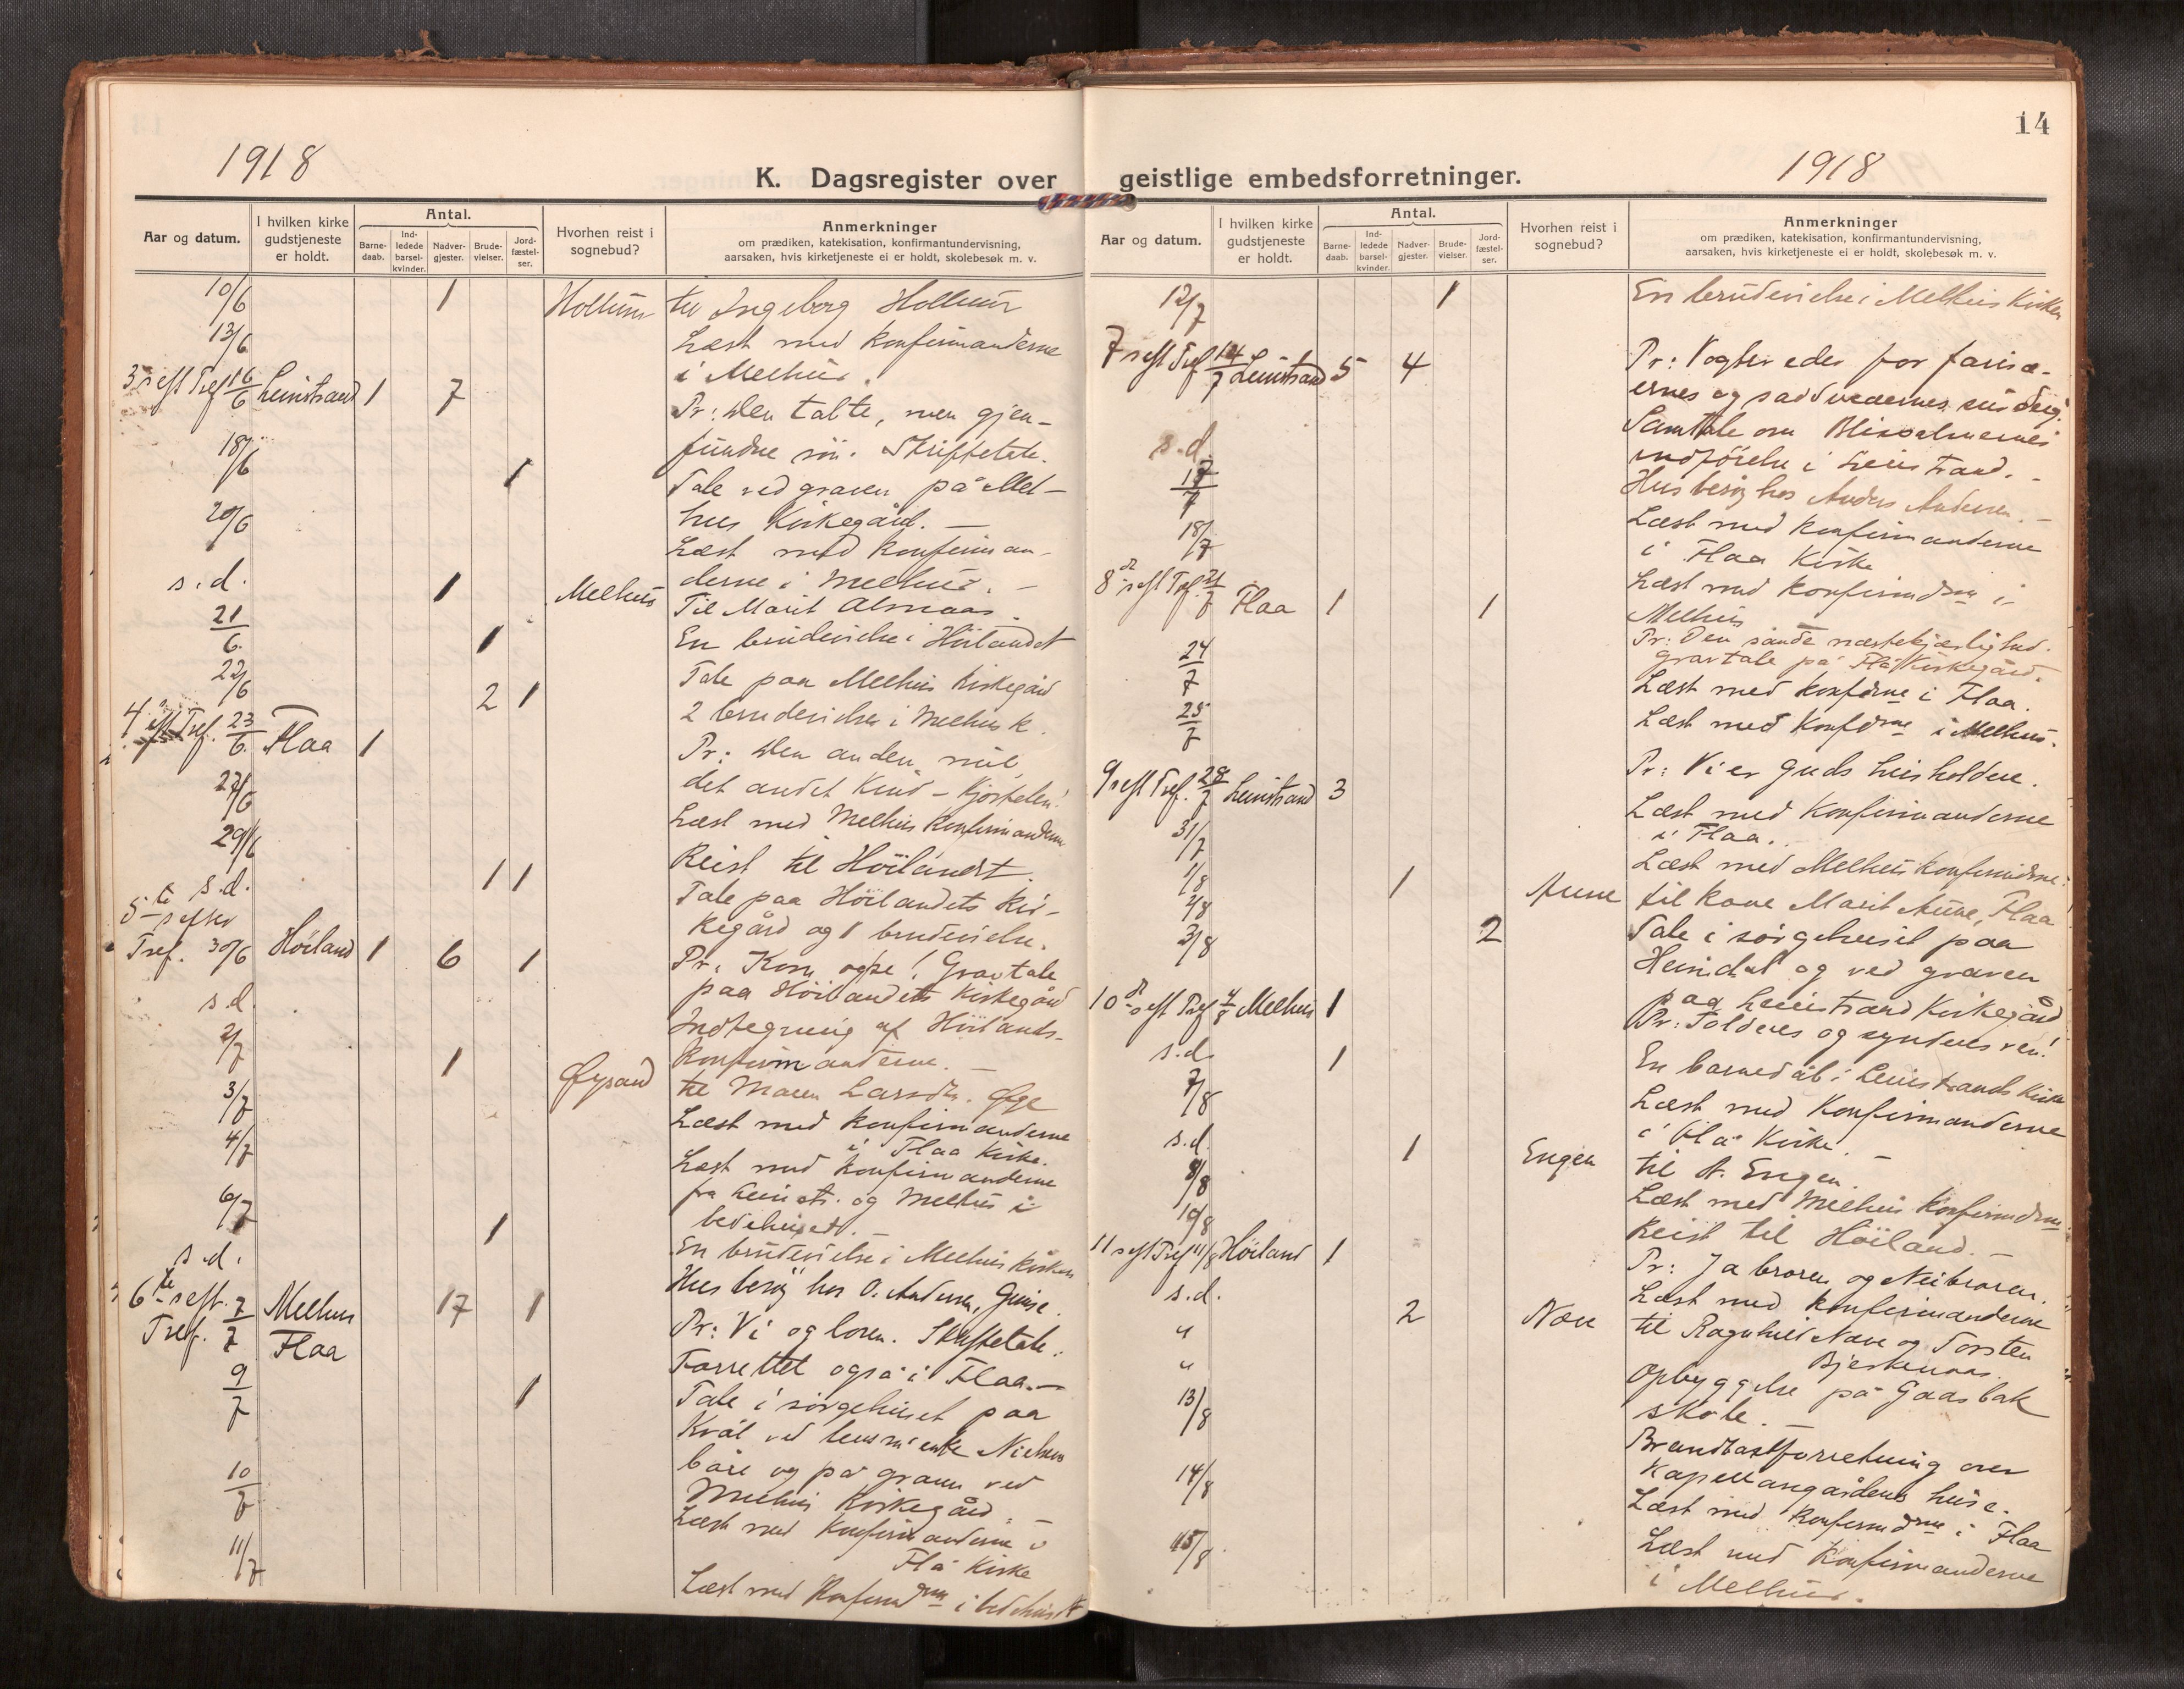 14
1918
K. Dagsregister over
Aar og datum.
I hvilken kirke gudstjeneste er holdt.
Antal.
Barne-daab.
Ind-ledede barsel-kvinder.
Nadver-gjester.
Brude-vielser.
Jord-fæstel-ser.
Hvorhen reist i sognebud?
Anmerkninger
om prædiken, katekisation, konfirmantundervisning,
aarsaken, hvis kirketjeneste ei er holdt, skolebesøk m. v.
10/6 1 Hollum til Ingeborg Hollum
13/6 Læst med konfirmanderne
i Melhus.
3 s eft Tref 16/6 Leinstrand 1 7 Pr: Den tabte, men gjen-
fundne søn. Skriftetale.
18/6 1 Tale ved graven på Mel-
hus Kirkegård. —
20/6 Læst med konfirman-
derne i Melhus. —
s.d. 1 Melhus Til Marit Almaas
21/6 1 En brudevielse i Höilandet
22/6 2 1 Tale paa Melhus Kirkegård
2 brudevielser i Melhus k.
4 s eft Tref. 23/6 Flaa 1 Pr: Den anden mil,
det andet Kind - Kjortelen!
27/6 Læst med Melhus Konfirmanderne
29/6 Reist til Höilandt.
s.d. 1 1 Tale paa Höilandets Kir-
kegård og 1 brudevielse.
5te s efter
Tref. 30/6 Höiland 1 6 1 Pr: Kom og se! Gravtale
paa Höilandets Kirkegård
s.d. Indtegning af Höilands-
konfirmanderne. —
2/7 1 Øysand til Maren Larsdtr. Øye
3/7 Læst med konfirmanderne
i Flaa Kirke.
4/7 Læst med konfirmanderne
fra Leinstr. og Melhus i
bedehuset. —
6/7 1 En brudevielse i Melhus kirken
s.d. Husbesøg hos O. Andersen, Gimse.
6te s eft. Tref. 7/7 Melhus 17 1 Pr: Vi og loven. Skriftetale.
Flaa Forrettet også i Flaa. —
9/7 1 Tale i sørgehuset paa
Kvål ved enke Nielsens
båre og på graven ved
Melhus Kirkegård. —
10/7 Læst med Konfirmanderne i
Flå Kirke
11/7 Læst med Konfirmdrne i bedehuset
1918
geistlige embedsforretninger.
Aar og datum.
I hvilken kirke gudstjeneste er holdt.
Antal.
Barne-daab.
Ind-ledede barsel-kvinder.
Nadver-gjester.
Brude-vielser.
Jord-fæstel-ser.
Hvorhen reist i sognebud?
Anmerkninger
om prædiken, katekisation, konfirmantundervisning,
aarsaken, hvis kirketjeneste ei er holdt, skolebesøk m. v.
12/7 1 En brudevielse i Melhus Kirken
7 s eft Tref 14/7 Leinstrand 5 4 Pr: Vogter eder for farisæ-
ernes og sadducæernes surdeig!
s.d. Samtale om
indførelse i Leinstrand. —
17/7 Husbesøg hos Anders Andersen. —
Læst med Konfirmanderne
i Flaa Kirke
18/7 Læst med Konfirmdrne i
Melhus
8de s eft Tref. 21/7 Flaa 1 1 Pr: Den sande næstekjærlighed.
Gravtale på Flå Kirkegård.
24/7 Læst med Konfdrne i Flaa.
25/7 Læst med Konfdrne i Melhus.
9 s eft Tref. 28/7 Leinstrand 3 Pr: Vi er Guds husholdere.
31/7 Læst med Konfirmanderne
i Flaa.
1/8 Læst med Melhus konfirmdrne.
2/8 1 Aune til kone Marit Aune, Flaa
3/8 2 Tale i sørgehuset paa
Heimdal og ved graven
paa Leinstrand Kirkegård
10de s eft Tref 4/8 Melhus 1 Pr: Tolderes og synderes ven!
s.d. 1 En barnedåb i Leinstrands Kirke
7/8 Læst med Konfirmanderne
i Flå Kirke. —
s.d. 1 Engen til A. Engen.
8/8 Læst med Melhus Konfirmdrne.
10/8 Reist til Höiland. —
11 s eft Tref 11/8 Höiland 1 Pr: Ja broren og Neibroren.
s.d. Læst med konfirmanderne
" 2 Næve til Ragnhild Næve og Torsten
Bjerkenaas.
" Opbyggelse på Gaasbak
skole. —
13/8 Brandtaxtforretning over
Kapellangårdens huse.
14/8 Læst med Konfirmdrne i Flaa
15/8 Læst med Konfirmanderne
i Melhus.